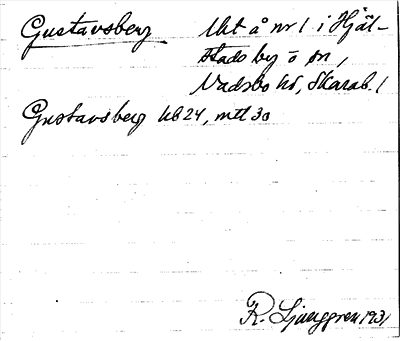 Gustavsberg Utet å nr 1 i Hjäl-
stads by o sn,
Vadsbo hd, Skarab. l
Gustavsberg hb 24, mtl 30
R. Ljunggren 1931